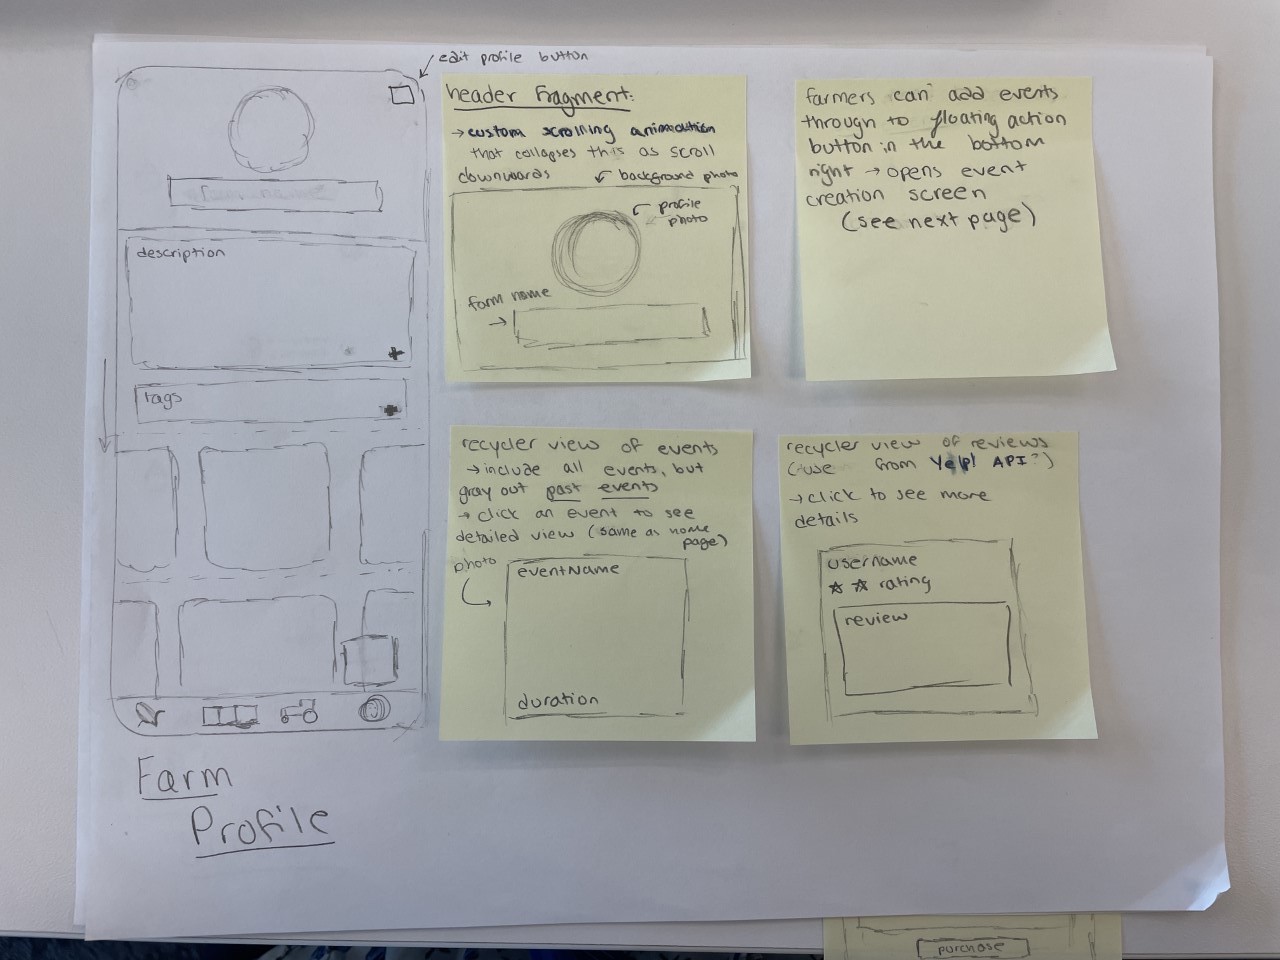 edit profile button
description
tags
Farm
Profile
header fragment:
→ custom scrolling animation
that collapses this as scroll
downwards
background photo
profile
photo
farm name
farmers can add events
through to floating action
button in the bottom
right → opens event
creation screen
(see next page)
recycler view of events
→ include all events, but
gray out past events
→ click an event to see
detailed view (same as home
page)
photo
eventName
duration
recycler view of reviews
(use from Yelp! API?)
→ click to see more
details
username
☆ ☆ rating
review
purchase